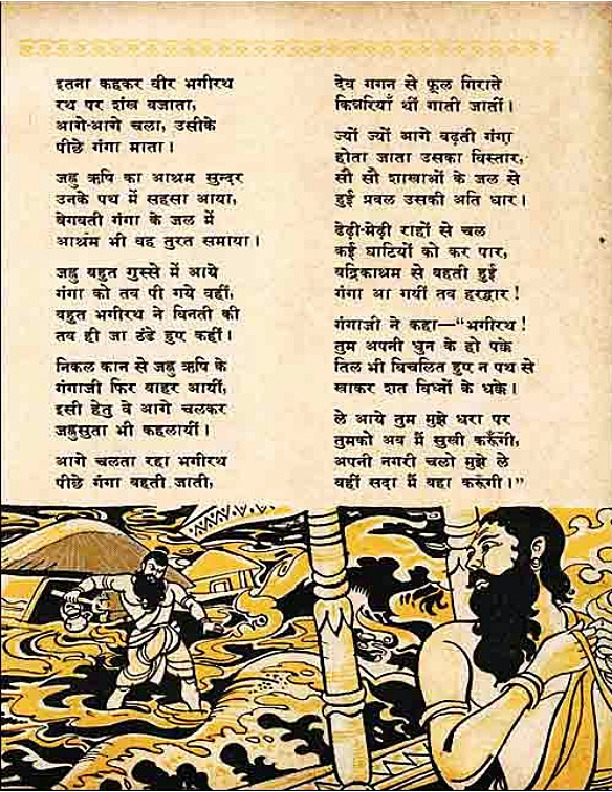 इतना कहकर वीर भगीरथ
रथ पर शंख बजाता,
आगे-आगे चला, उसीके
पीछे गंगा माता।
जह्नु ऋषि का आश्रम सुन्दर
उनके पथ में सहसा आया,
वेगवती गंगा के जल में
आश्रम भी वह तुरत समाया।
जह्नु बहुत गुस्से में आये
गंगा को तब पी गये वहीं,
बहुत भगीरथ ने विनती की
तब ही जा ठंडे हुए कहीं।
निकल कान से जह्नु ऋषि के
गंगाजी फिर बाहर आयीं,
इसी हेतु वे आगे चलकर
जह्नुसुता भी कहलायीं।
आगे चलता रहा भगीरथ
पीछे गंगा बहती जाती,
देव गगन से फूल गिराते
किन्नरियाँ थीं गाती जातीं।
ज्यों ज्यों आगे बढ़ती गंगा
होता जाता उसका विस्तार,
सौ सौ शाखाओं के जल से
हुई प्रबल उसकी अति धार।
टेढ़ी-मेढ़ी राहों से चल
कई घाटियों को कर पार,
बद्रिकाश्रम से बहती हुई
गंगा आ गयीं तब हरद्वार!
गंगाजी ने कहा—"भगीरथ!
तुम अपनी धुन के हो पक्के
तिल भी विचलित हुए न पथ से
खाकर शत विघ्नों के धक्के।
ले आये तुम मुझे धरा पर
तुमको अब मैं सुखी करूँगी,
अपनी नगरी चलो मुझे ले
वहीं सदा मैं बहा करूंगी।"